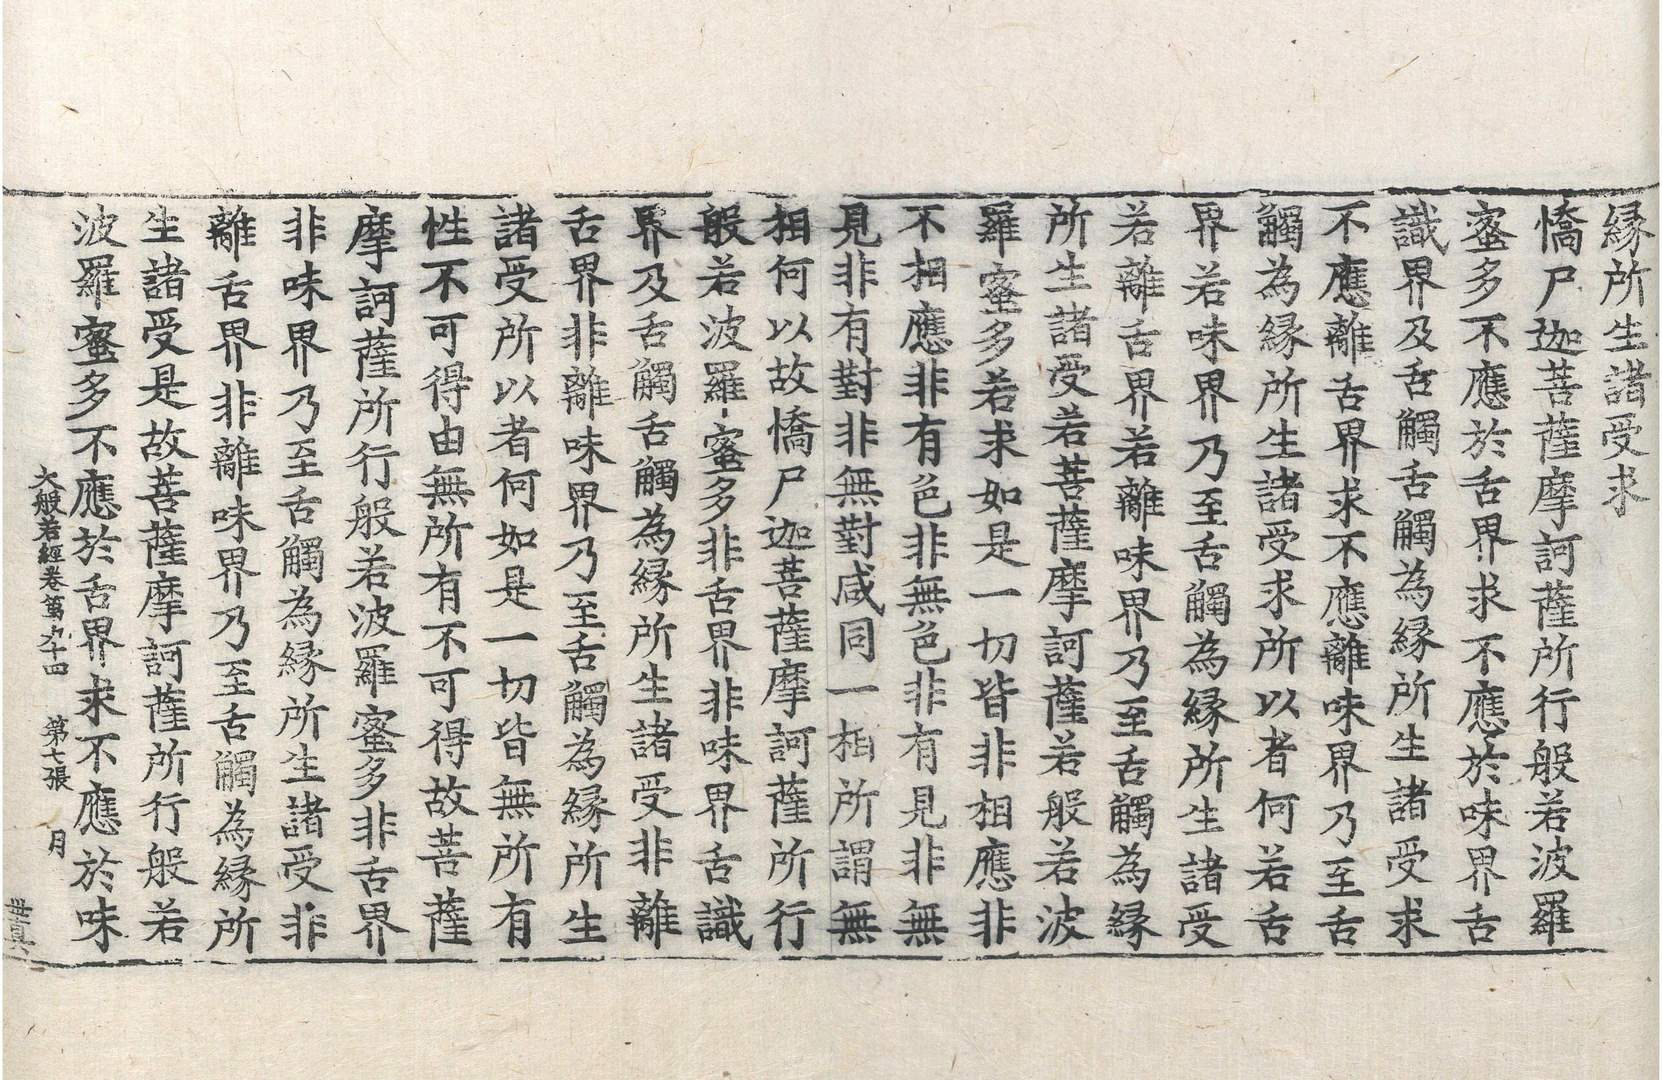 緣所生諸受求
憍尸迦菩薩摩訶薩所行般若波羅
蜜多不應於舌界求不應於味界舌
識界及舌觸舌觸為緣所生諸受求
不應離舌界求不應離味界乃至舌
觸為緣所生諸受求所以者何若舌
界若味界乃至舌觸為緣所生諸受
若離舌界若離味界乃至舌觸為緣
所生諸受若菩薩摩訶薩若般若波
羅蜜多若求如是一切皆非相應非
不相應非有色非無色非有見非無
見非有對非無對咸同一相所謂無
相何以故憍尸迦菩薩摩訶薩所行
般若波羅蜜多非舌界非味界舌識
界及舌觸舌觸為緣所生諸受非離
舌界非離味界乃至舌觸為緣所生
諸受所以者何如是一切皆無所有
性不可得由無所有不可得故菩薩
摩訶薩所行般若波羅蜜多非舌界
非味界乃至舌觸為緣所生諸受非
離舌界非離味界乃至舌觸為緣所
生諸受是故菩薩摩訶薩所行般若
波羅蜜多不應於舌界求不應於味
大般若經卷第九十四 第七張 月